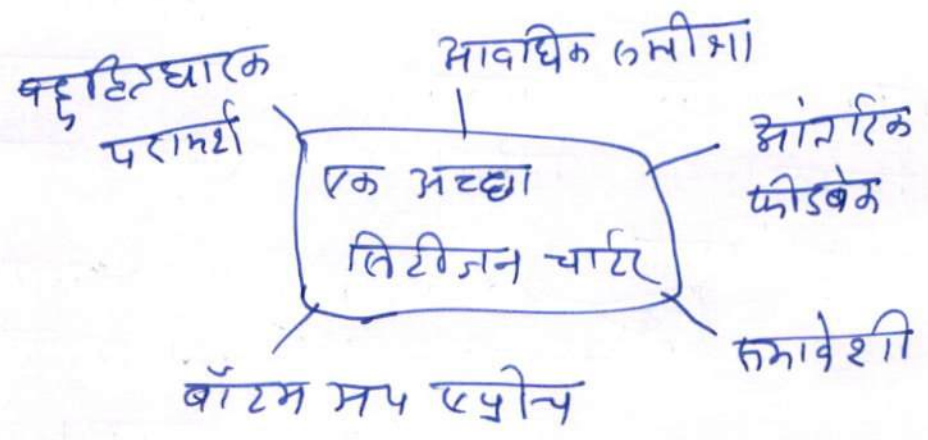 बहुहितधारक
परामर्श
आवधिक समीक्षा
आंतरिक
फीडबैक
एक अच्छा
सिटीजन चार्टर
समावेशी
बॉटम अप एप्रोच